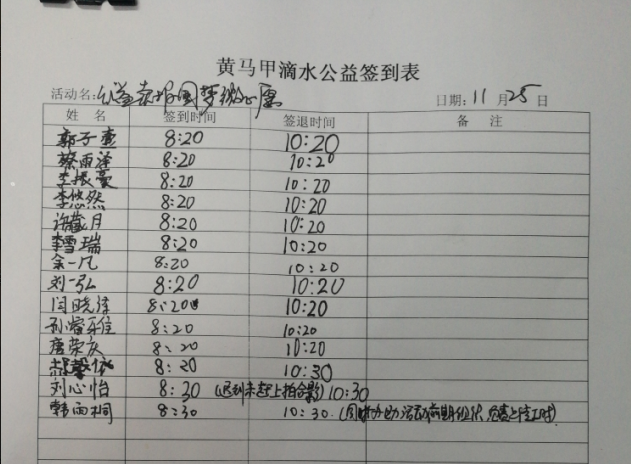 黄马甲滴水公益签到表
活动名: 公益 圆梦微心愿 日期: 11 月 25 日
姓 名 签到时间 签退时间 备 注
郭子 8:20 10:20
蔡雨泽 8:20 10:20
李振豪 8:20 10:20
李悠然 8:20 10:20
许 月 8:20 10:20
李雪瑞 8:20 10:20
余一凡 8:20 10:20
刘一弘 8:20 10:20
闫晓 8:20 10:20
孙 佳 8:20 10:20
唐荣庆 8:20 10:20
馨依 8:20 10:30
刘心怡 8:30 (迟到未赶上拍合影) 10:30
韩雨桐 8:30 10:30